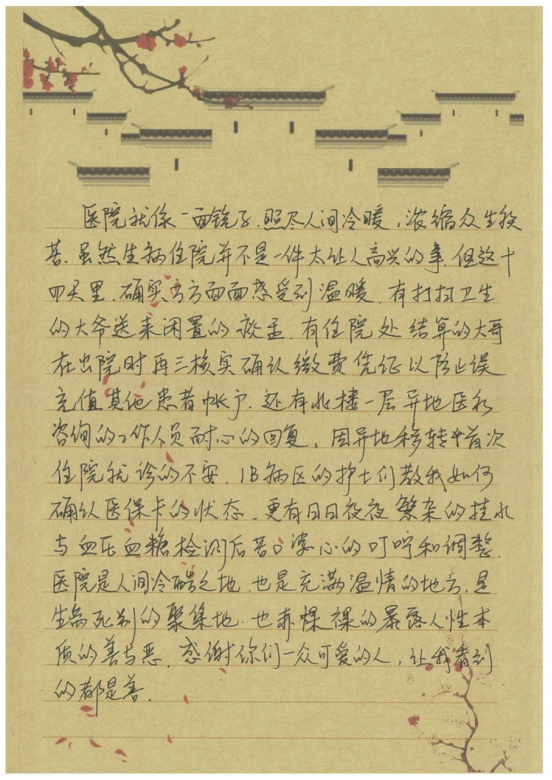 医院就像一面镜子.照尽人间冷暖，浓缩众生疾
苦.虽然生病住院并不是一件太让人高兴的事.但这十
四天里.确实方方面面感受到温暖.有打扫卫生
的大爷送来闲置的盆.有住院处结算的大哥
在出院时再三核实确认缴费凭证以防止误
充值其他患者帐户.还有北楼一层异地医保
咨询的工作人员耐心的回复，因异地移转首次
住院就诊的不安.1B病区的护士们教我如何
确认医保卡的状态.更有日日夜夜繁杂的挂水
与血压血糖检测后苦口婆心的叮咛和调整.
医院是人间冷酷之地.也是充满温情的地方，是
生离死别的聚集地.也赤裸裸的暴露人性本
质的善与恶.感谢你们一众可爱的人，让我看到
的都是善.